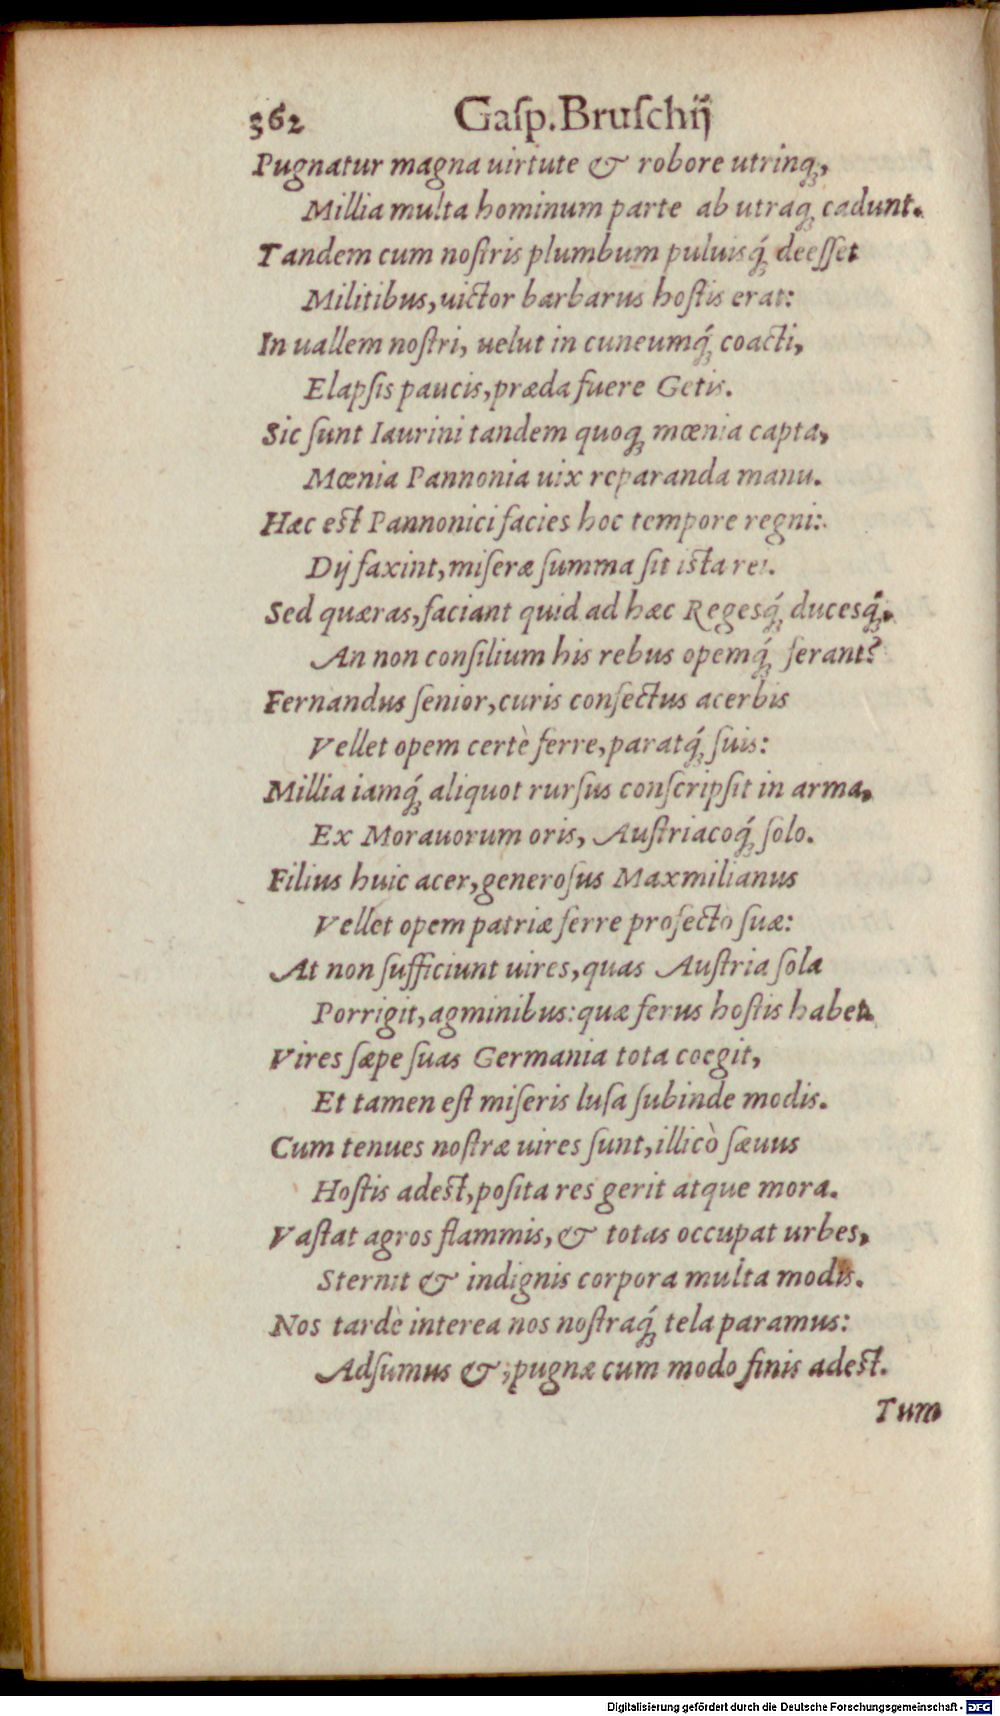 362 Gaſp. Bruſchij
Pugnatur magna uirtute & robore utrinq́;,
Millia multa hominum parte ab utraq; cadunt.
Tandem cum noſtris plumbum puluisq́; deeſſet
Militibus, uictor barbarus hoſtis erat:
In uallem noſtri, uelut in cuneumq́; coacti,
Elapſis paucis, præda fuere Getis.
Sic ſunt Iaurini tandem quoq; mœnia capta,
Mœnia Pannonia uix reparanda manu.
Hæc eſt Pannonici facies hoc tempore regni:
Dij faxint, miſeræ ſumma ſit iſta rei.
Sed quæras, faciant quid ad hæc Regesq́; ducesq́;,
An non conſilium his rebus opemq́; ferant?
Fernandus ſenior, curis confectus acerbis
Vellet opem certè ferre, paratq́; ſuis:
Millia iamq́; aliquot rurſus conſcripſit in arma,
Ex Morauorum oris, Auſtriacoq́; ſolo.
Filius huic acer, generoſus Maxmilianus
Vellet opem patriæ ferre profectò ſuæ:
At non ſufficiunt uires, quas Auſtria ſola
Porrigit, agminibus: quæ ferus hoſtis habet.
Vires ſæpe ſuas Germania tota coegit,
Et tamen eſt miſeris luſa ſubinde modis.
Cum tenues noſtræ uires ſunt, illicò ſæuus
Hoſtis adeſt, poſita res gerit atque mora.
Vaſtat agros flammis, & totas occupat urbes,
Sternit & indignis corpora multa modis.
Nos tardè interea nos noſtraq́; tela paramus:
Adſumus &, pugnæ cum modo finis adeſt.
Tum
Digitalisierung gefördert durch die Deutsche Forschungsgemeinschaft - DFG